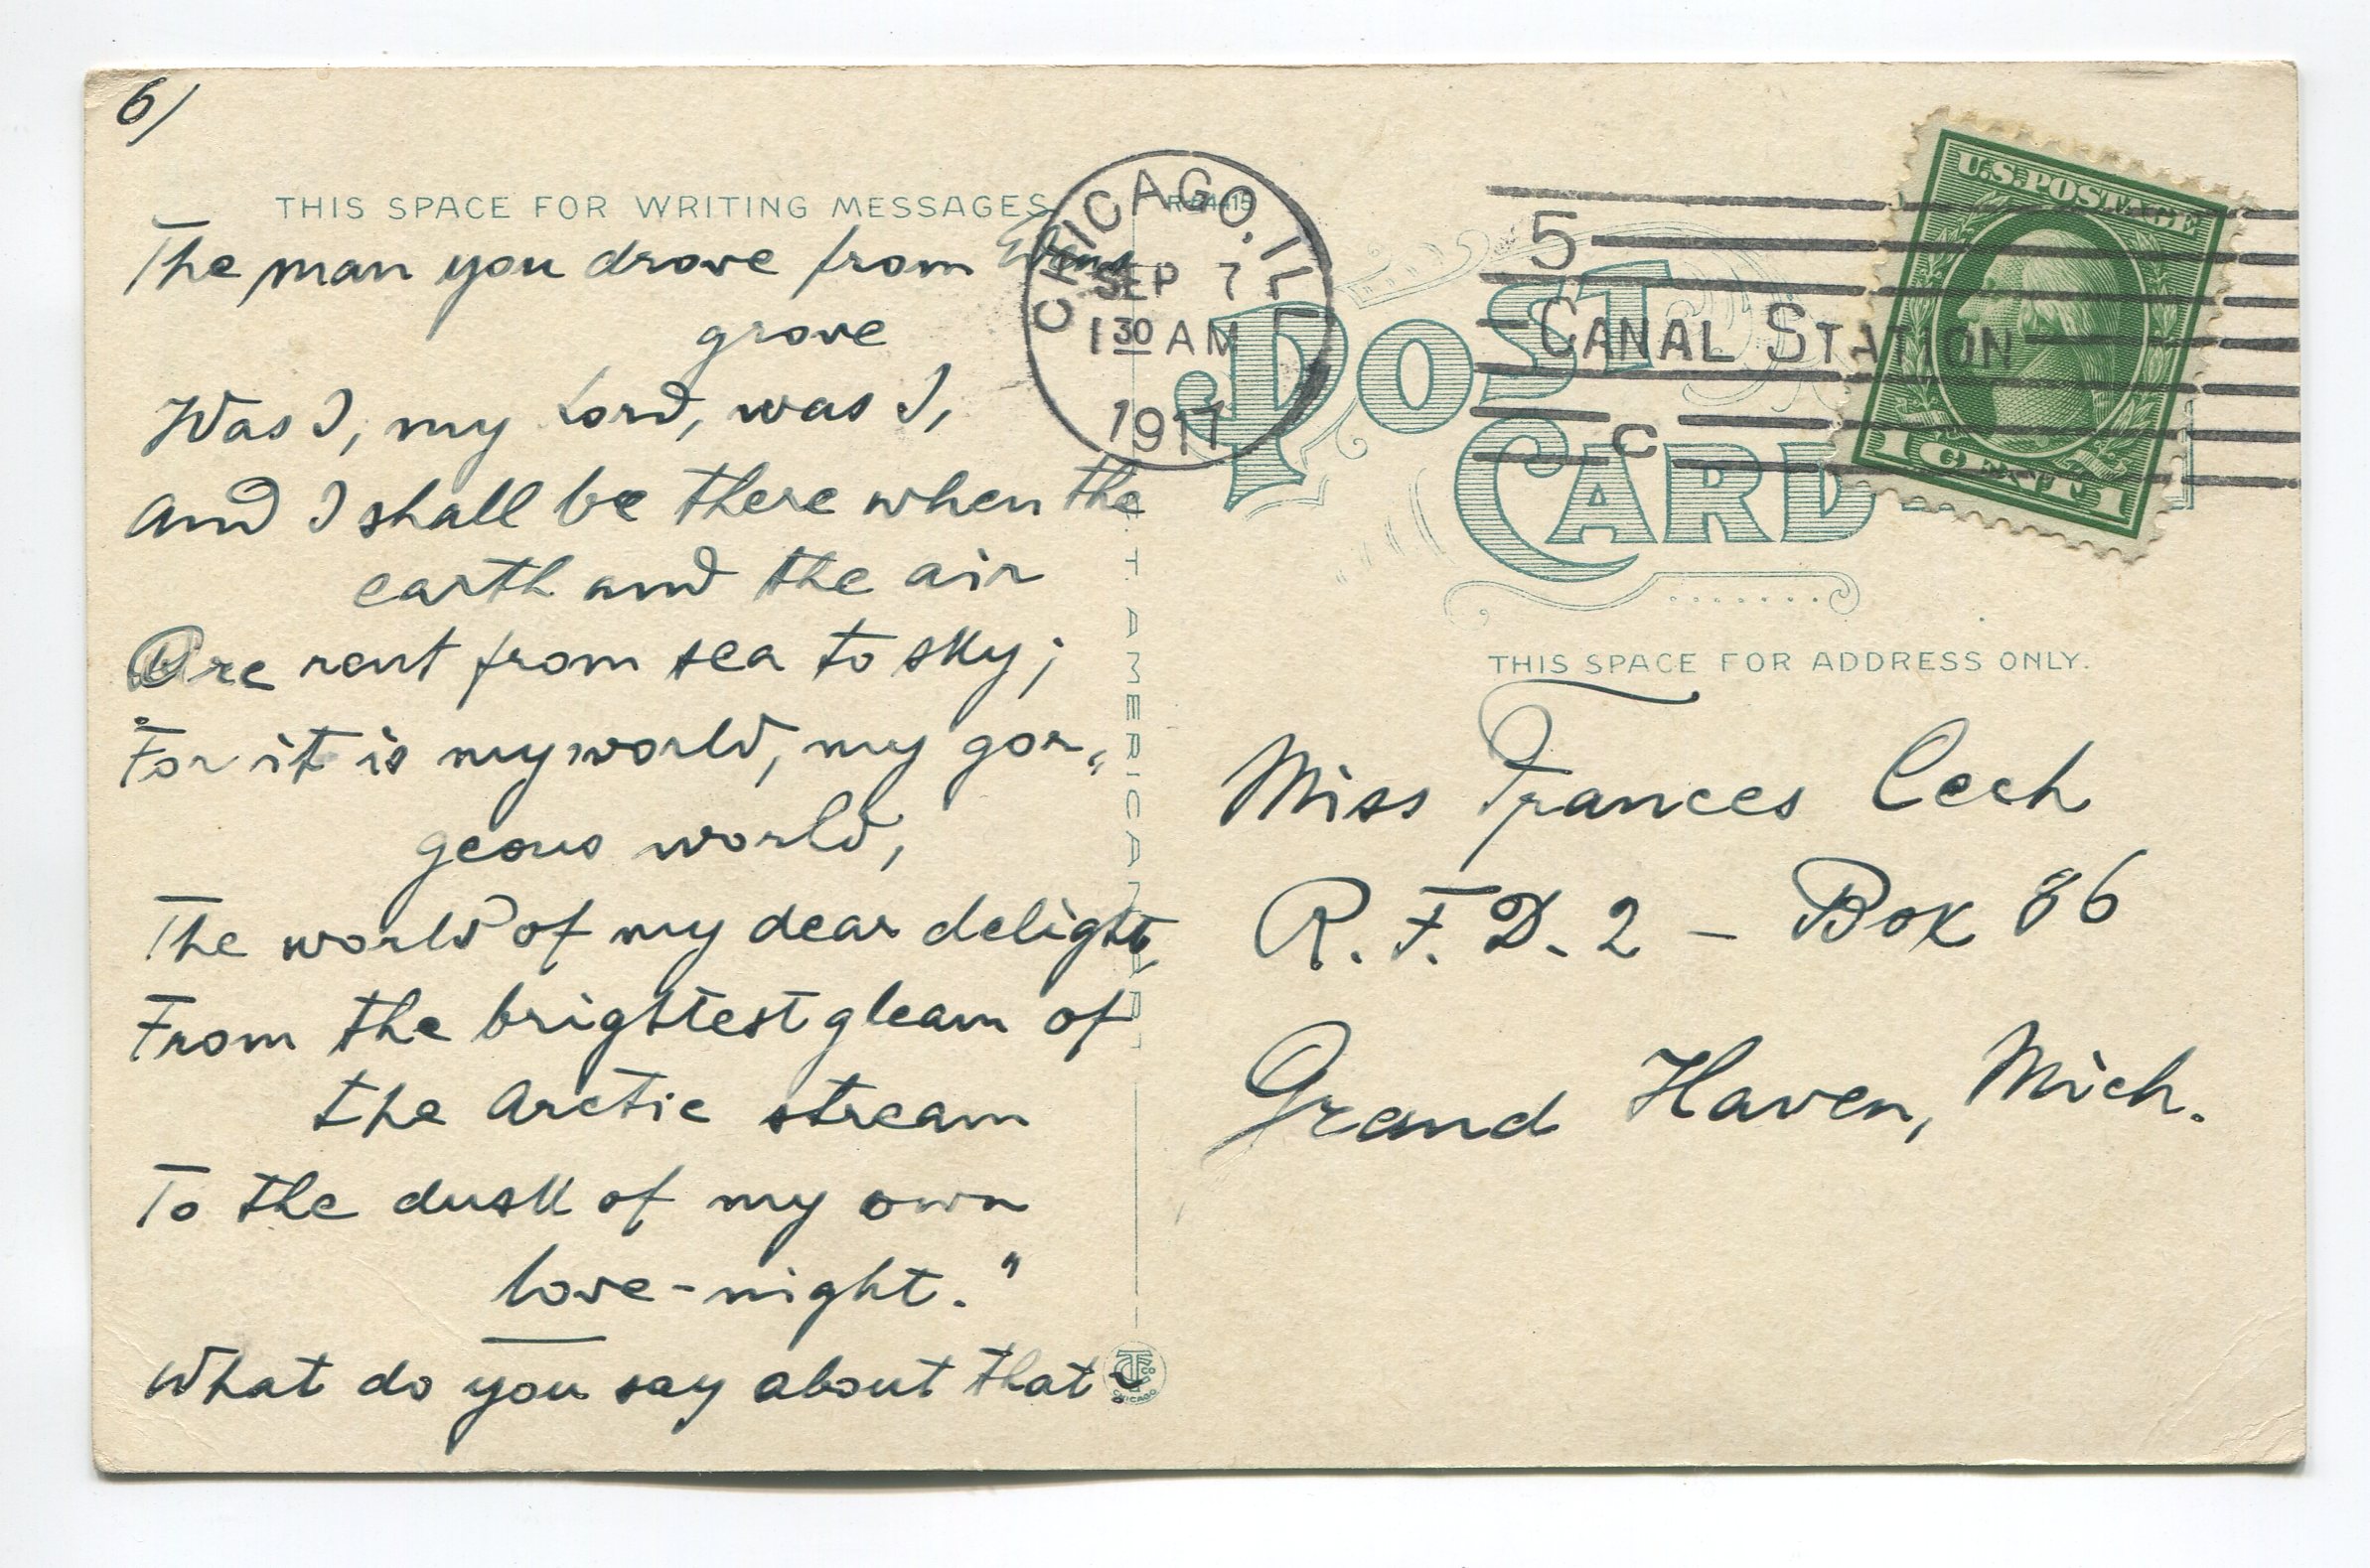 6/
THIS SPACE FOR WRITING MESSAGES
The man you drove from
grove
Was I, my Lord, was I,
And I shall be there when the
earth and the air
Are rent from sea to sky;
For it is my world, my gor„
geous world,
The world of my dear delight,
From the brightest gleam of
the Arctic stream
To the dusk of my own
love-night."
What do you say about that?
C.T. AMERICAN ART
CHICAGO, ILL
SEP 7
1 30 AM
1917
5
CANAL STATION
C
U.S. POSTAGE
1 CENT 1
POST
CARD
THIS SPACE FOR ADDRESS ONLY.
Miss Frances Cech
R. F. D. 2 – Box 86
Grand Haven, Mich.